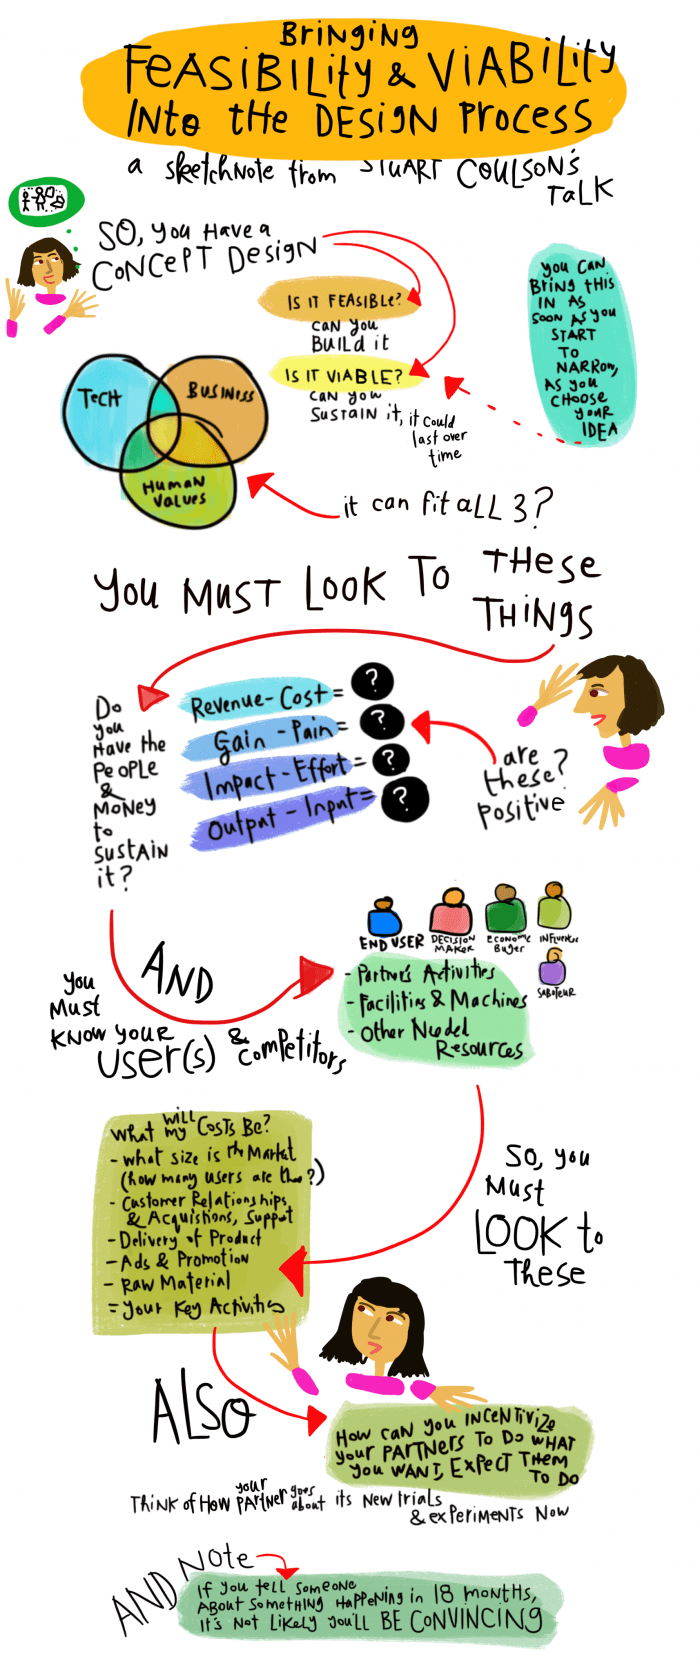 Bringing
Feasibility & Viability
Into the Design Process
a sketchnote from Stuart Coulson's
Talk
So, you have a
Concept Design
Is it feasible?
can you
build it
Is it viable?
can you
sustain it, it could
last over
time
You can
bring this
in as
soon as you
start
to
narrow,
as you
choose
your
idea
Tech
Business
Human
Values
it can fit all 3?
You must look to these
things
Do
you
have the
people
&
money
to
sustain
it?
Revenue - Cost = ?
Gain - Pain = ?
Impact - Effort = ?
Output - Input = ?
are
these?
positive
AND
You
must
know your
user(s) & competitors
End User
Decision
Maker
Economic
Buyer
Influencer
Saboteur
- Partner Activities
- Facilities & Machines
- Other Needed
Resources
What will my costs be?
- what size is the Market
(how many users are there?)
- Customer Relationships,
& Acquistions, Support
- Delivery of Product
- Ads & Promotion
- Raw Material
= Your Key Activities
So, you
must
look to
these
Also
How can you incentivize
your partners to do what
you want, expect them
to do
Think of How your partner goes about its new trials
& experiments now
And Note
If you tell someone
about something happening in 18 months,
it's not likely you'll be convincing